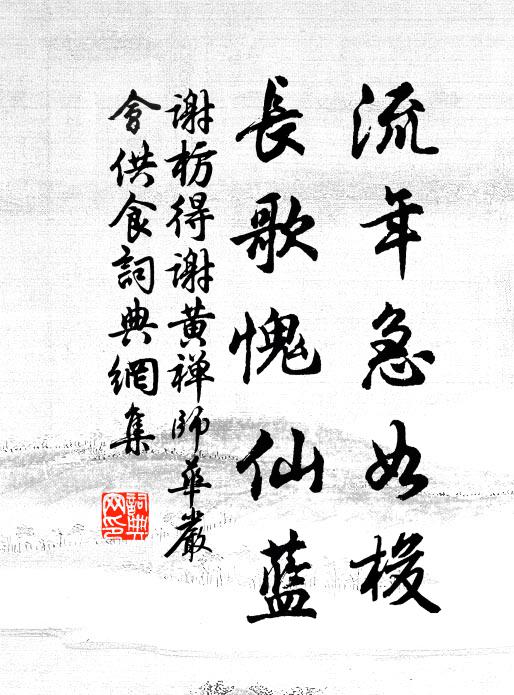 流年急如梭
長歌愧仙藍
謝枋得謝黃禅師華嚴
會供食詞典網集
詞典网印